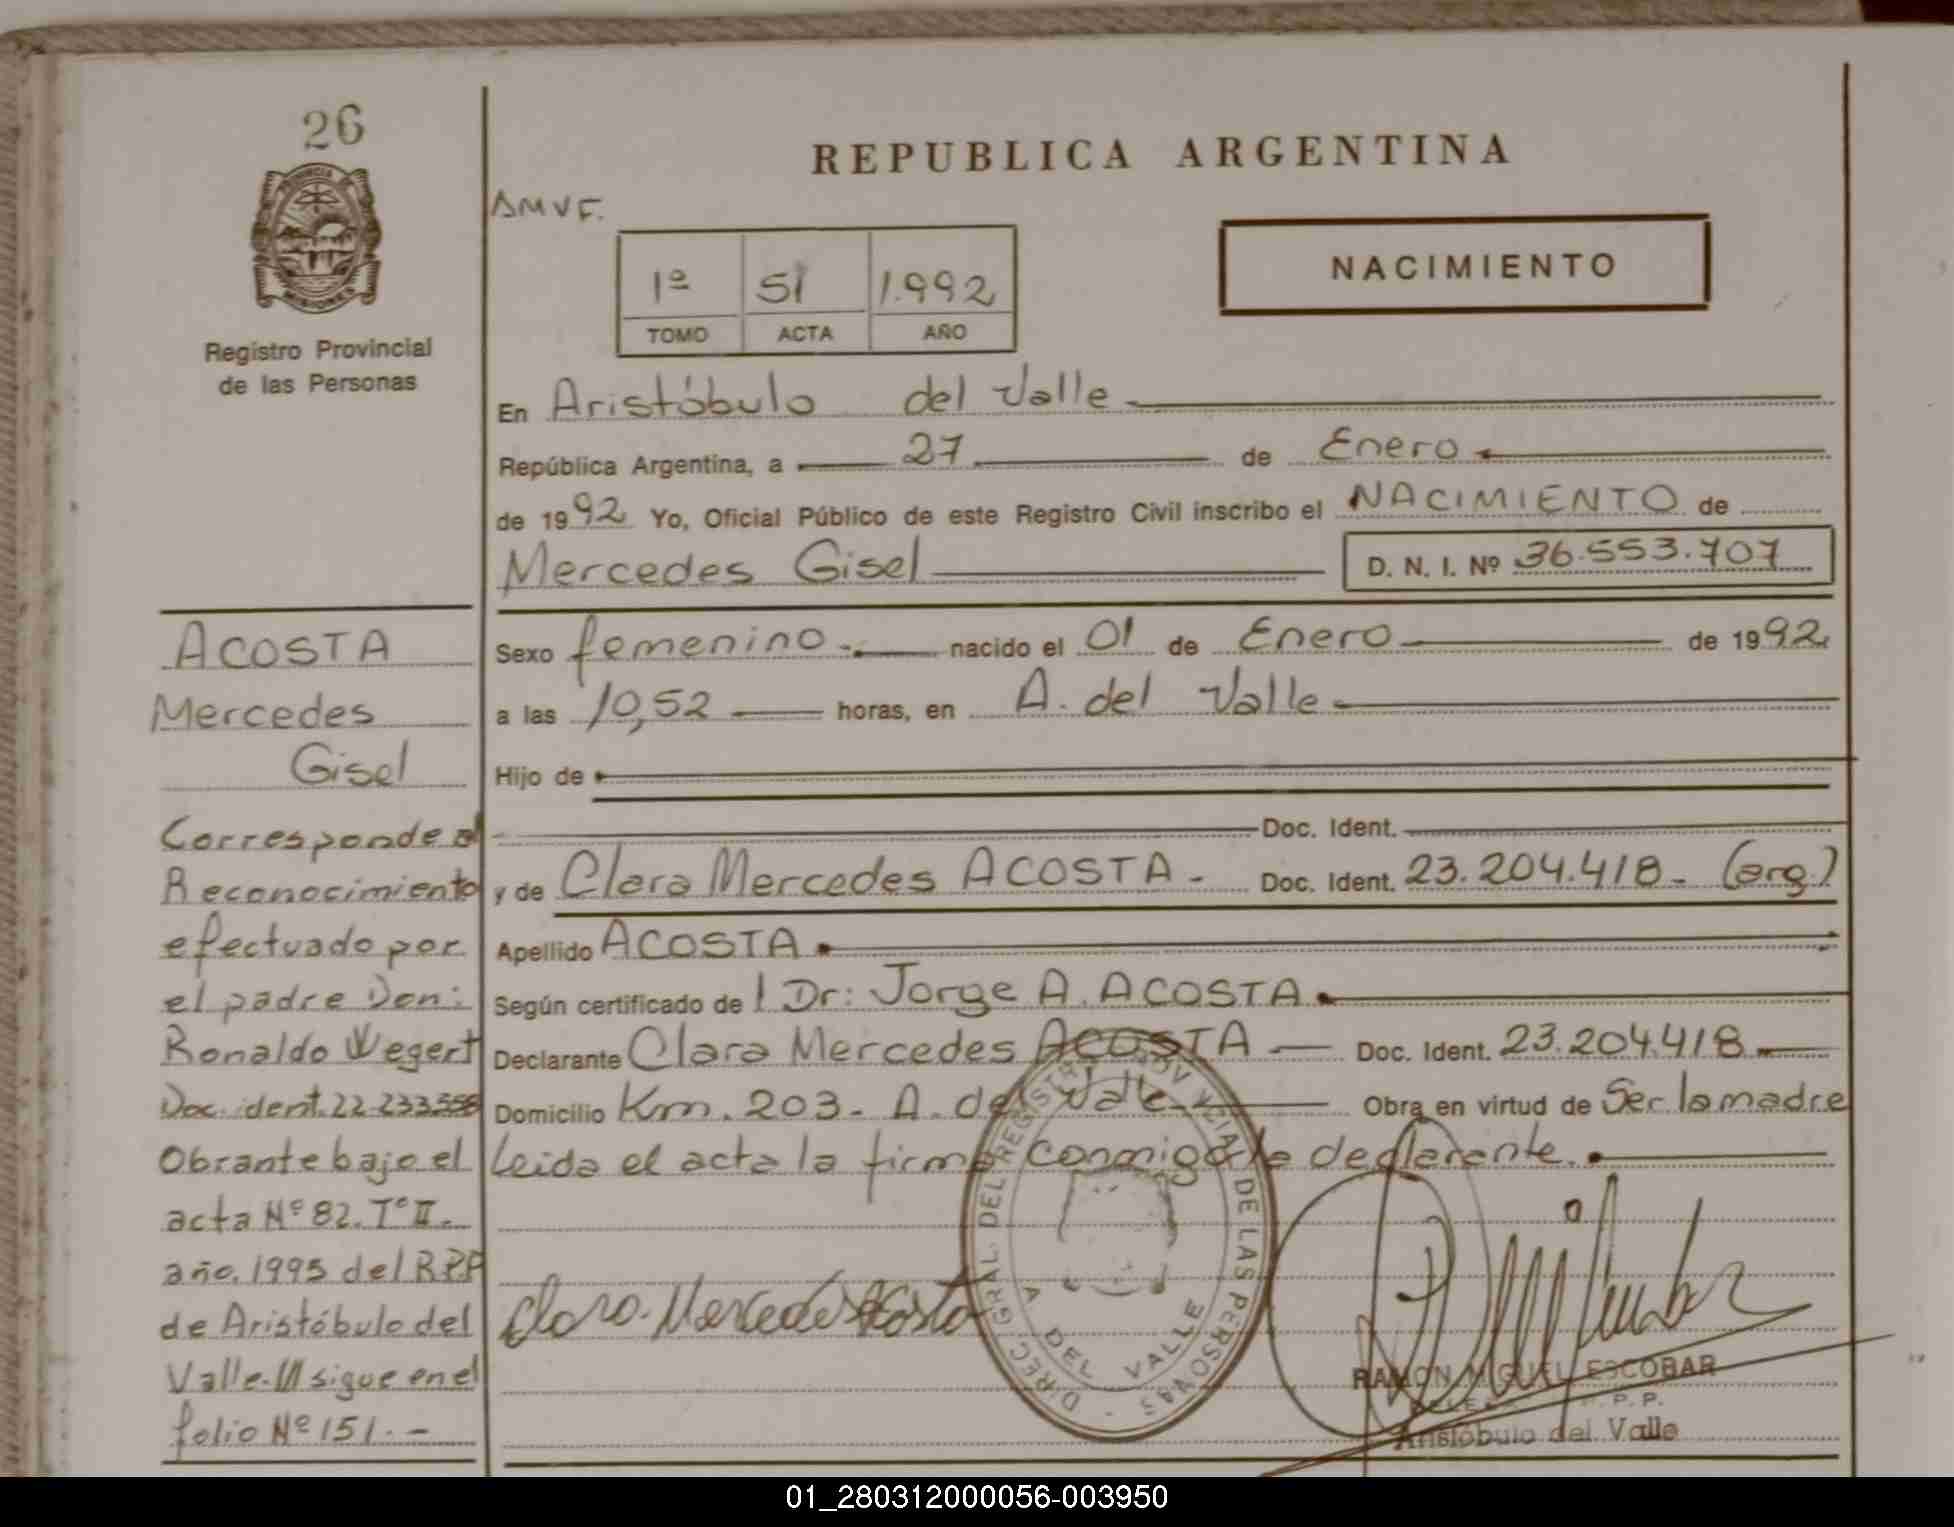 26
PROVINCIA DE
MISIONES
Registro Provincial
de las Personas
REPUBLICA ARGENTINA
1º 51 1.992
TOMO ACTA AÑO
NACIMIENTO
En Aristóbulo del Valle
República Argentina, a 27 de Enero
de 1992 Yo, Oficial Público de este Registro Civil inscribo el NACIMIENTO de
Mercedes Gisel D. N. I. Nº 36.553.707
Sexo femenino. nacido el 01 de Enero de 1992
a las 10,52 horas, en A. del Valle
Hijo de
Doc. Ident.
y de Clara Mercedes ACOSTA - Doc. Ident. 23.204.418 - (arg.)
Apellido ACOSTA
Según certificado de l Dr: Jorge A. ACOSTA
Declarante Clara Mercedes ACOSTA Doc. Ident. 23.204.418
Domicilio Km. 203 - A. del Valle Obra en virtud de Ser la madre
Leida el acta la firma conmigo la declarante.
ACOSTA
Mercedes
Gisel
Corresponde al
Reconocimiento
efectuado por
el padre Don:
Ronaldo Wegert
Doc. ident. 22.233.556
Obrante bajo el
acta Nº 82. Tº II.-
año. 1995 del R.P.P
de Aristóbulo del
Valle./// sigue en el
folio Nº 151.-
Clara Mercedes Acosta
DIREC. GRAL. DEL REGISTRO PROVINCIAL DE LAS PERSONAS
A DEL VALLE
RAMON MIGUEL ESCOBAR
Aristóbulo del Valle
01_280312000056-003950